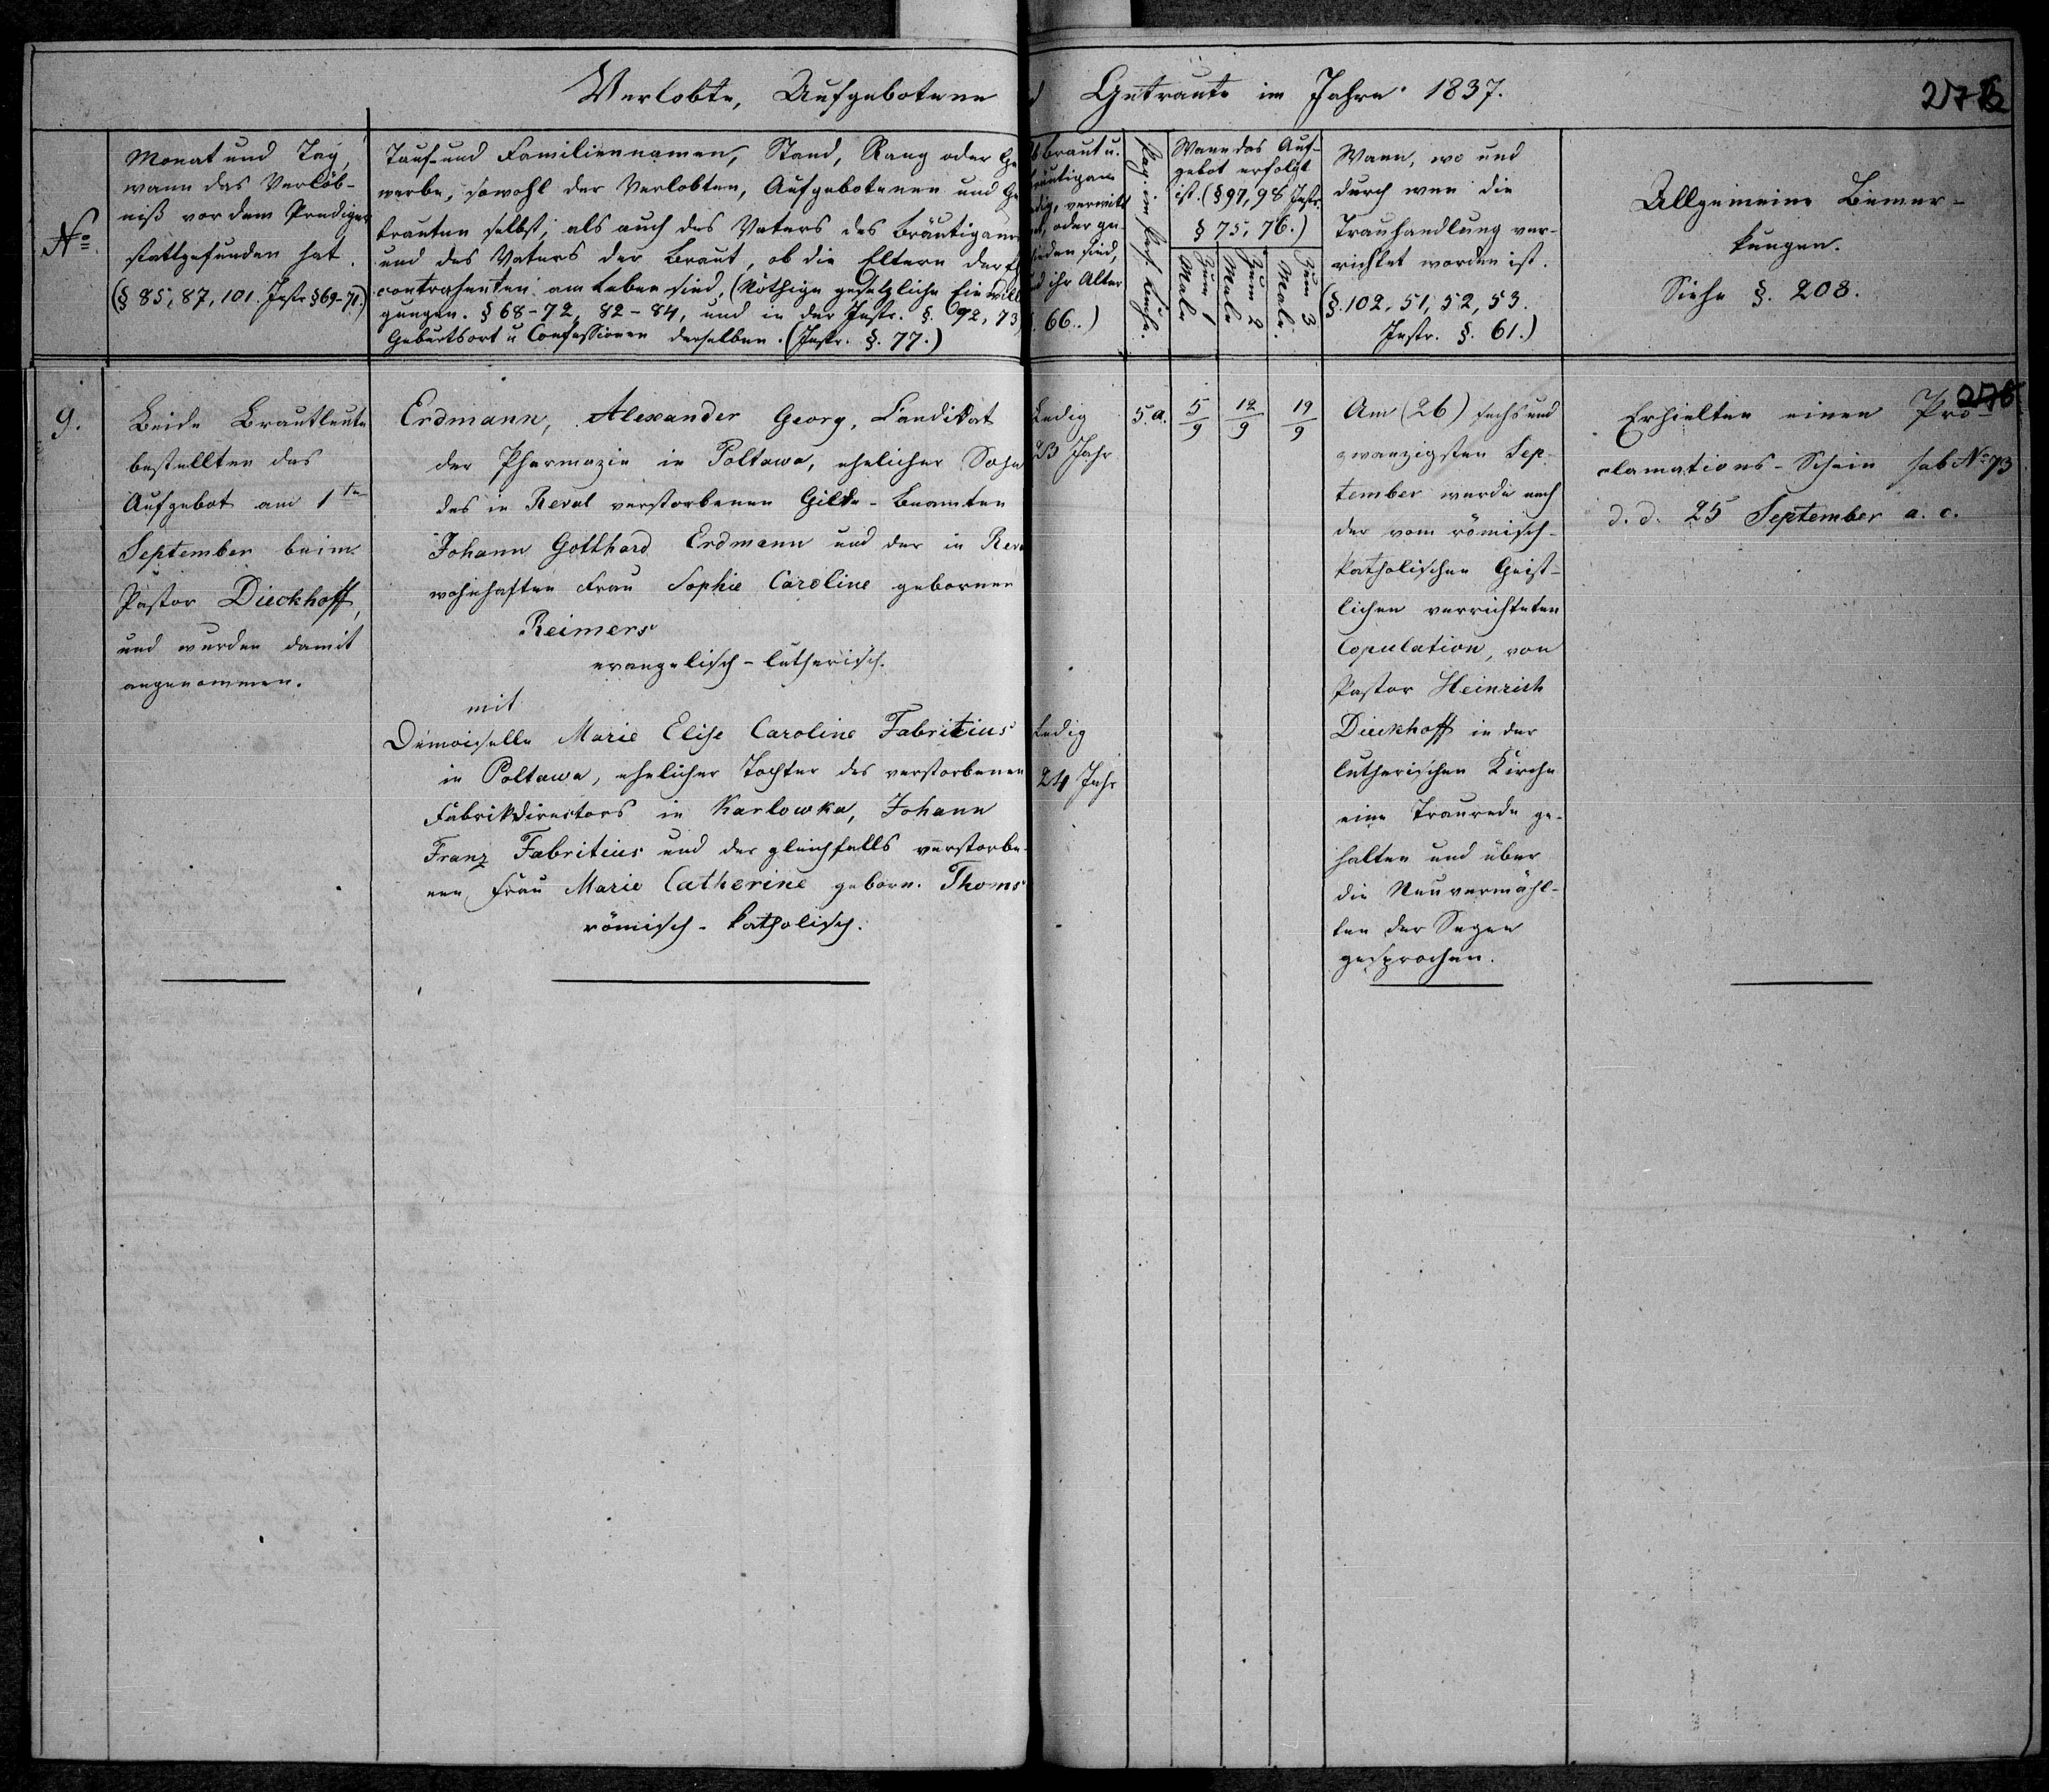 Verlobte, Aufgebotene
d Getraute im Jahre 1837.
No
Monat und Tag,
wann das Verlöb-
niß vor dem Prediger
stattgefunden hat.
(§ 85, 87, 101. Instr. § 69-71.)
Tauf- und Familiennamen, Stand, Rang oder Ge
werbe, sowohl der Verlobten, Aufgebotenen und Ge
trauten selbst, als auch des Vaters des Bräutigams
und des Vaters der Braut, ob die Eltern der
contrahenten am Leben sind, (Nöthige gesetzliche Einwilli
gungen. § 68-72, 82-84, und in der Instr. §. 92, 73,
Geburtsort u Confessionen derselben. (Instr. §. 77.)
Braut u.
äutigam
dig, verwitt
et, oder ge-
ieden sind,
d ihr Alter
. 66.)
Pag. im Pers. Buche.
Wann das Auf-
gebot erfolgt
ist. (§ 97, 98 Instr.
§ 75, 76.)
Zum 1 Male
Zum 2 Male
Zum 3 Male.
Wann, wo und
durch wen die
Trauhandlung ver-
richtet worden ist.
(§. 102, 51, 52, 53.
Instr. §. 61.)
Allgemeine Bemer-
kungen.
Siehe §. 208.
9.
Beide Brautleute
bestellten das
Aufgebot am 1ten
September beim
Pastor Dieckhoff,
und wurden damit
angenommen.
Erdmann, Alexander Georg, Candidat
der Pharmazie in Poltawa, ehelicher Sohn
des in Reval verstorbenen Gilde-Beamten
Johann Gotthard Erdmann und der in Rev
wohnhaften Frau Sophie Caroline gebornen
Reimers
evangelisch-lutherisch.
mit
Demoiselle Marie Elise Caroline Fabritius
in Poltawa, ehelicher Tochter des verstorbenen
Fabrikdirectors in Karlowka, Johann
Franz Fabritius und der gleichfalls verstorbe-
nen Frau Marie Catherine geborn. Thoms
römisch-katholisch.
Ledig
23 Jahr
Ledig
24 Jahr
5.a.
5/9
12/9
19/9
Am (26) sechs und
zwanzigsten Sep-
tember wurde nach
der vom römisch-
katholischen Geist-
lichen verrichteten
Copulation, von
Pastor Heinrich
Dieckhoff in der
lutherischen Kirche
eine Traurede ge-
halten und über
die Neuvermähl-
ten der Segen
gesprochen.
Erhielten einen Pro-
clamations-Schein sub No 73
d. d. 25 September a. c.